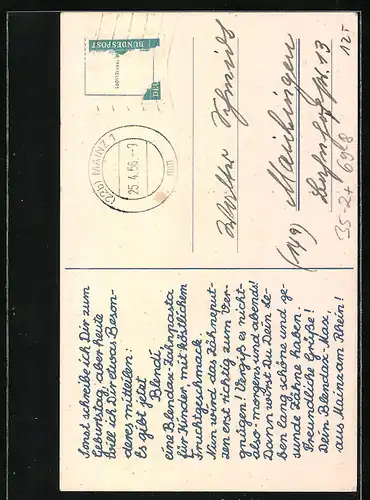 Sonst schreibe ich Dir zum
Geburtstag, aber heute
will ich Dir etwas Beson-
deres mitteilen:
Es gibt jetzt
Blendi,
eine Blendax-Zahnpasta
für Kinder mit köstlichem
Fruchtgeschmack.
Nun wird das Zähneput-
zen erst richtig zum Ver-
gnügen! Vergiß es nicht-
also-morgens und abends!
Dann wirst Du Dein Le-
ben lang schöne und ge-
sunde Zähne haben.
Freundliche Grüße!
Dein Blendax-Max,
aus Mainz am Rhein!
BUNDESPOST
(22b) MAINZ 1
25.4.56.-9
Walter Schmid
(14a) Maichingen
13
12T
35-2+ 6968